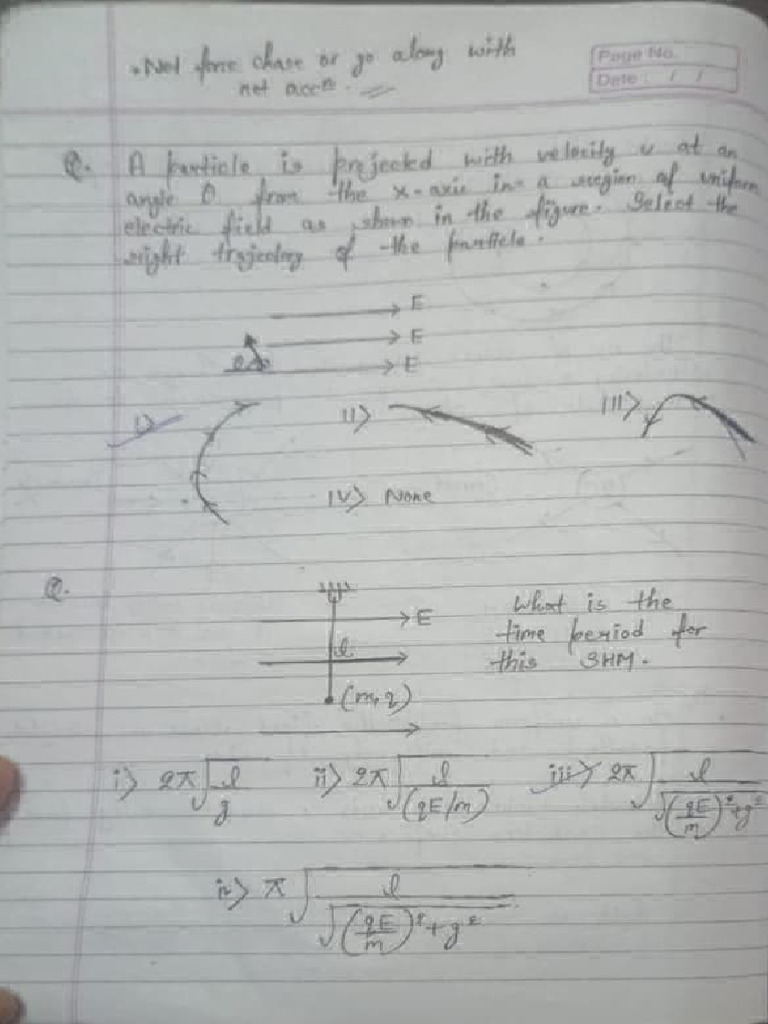 • Net force chase or go along with
net accⁿ.
Page No.
Date: / /
Q. A particle is projected with velocity u at an
angle θ from the x-axis in a region of uniform
electric field as shown in the figure. Select the
right trajectory of the particle.
E
E
θ E
i> ii> iii>
iv> None
Q.
E
l
(m,q)
What is the
time period for
this SHM.
i> 2π√(l/g) ii> 2π√(l/(qE/m)) iii> 2π√(l/√((qE/m)²+g²))
iv> π√(l/√((qE/m)²+g²))